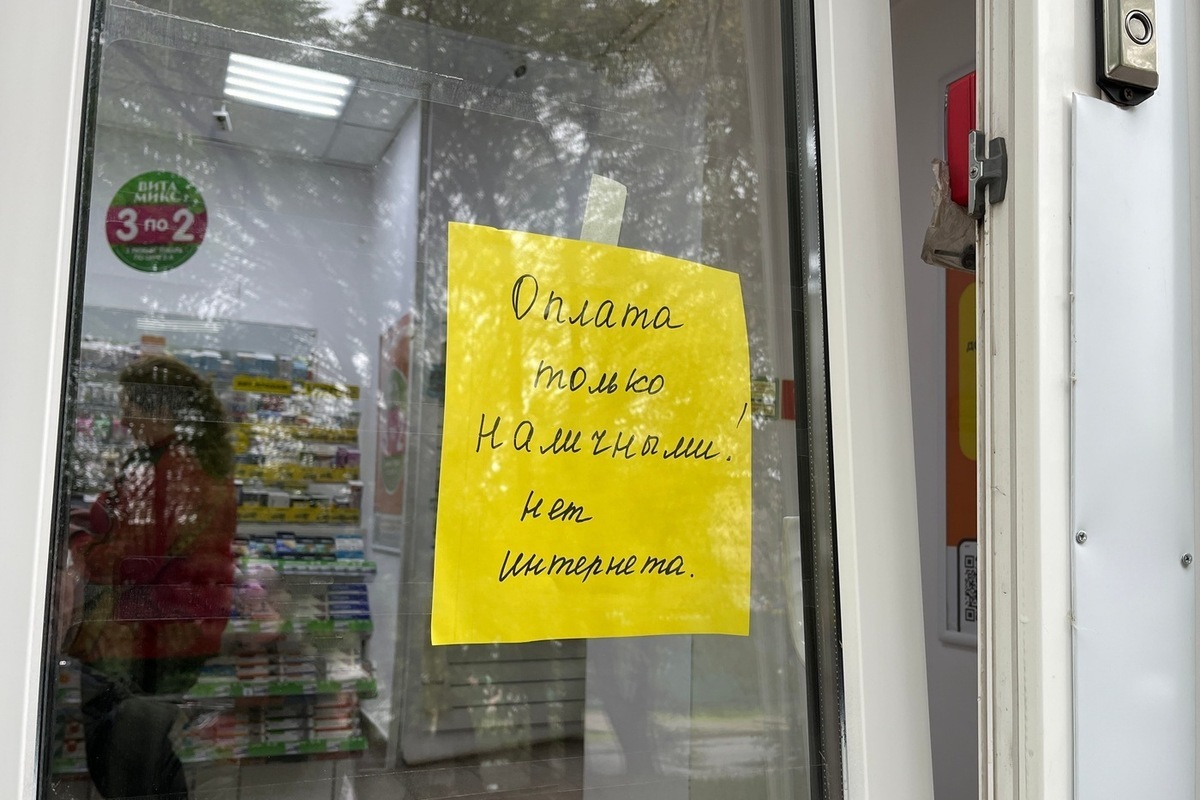 ВИТА
МИКС
3 по 2
Оплата
только
Наличными!
нет
интернета.